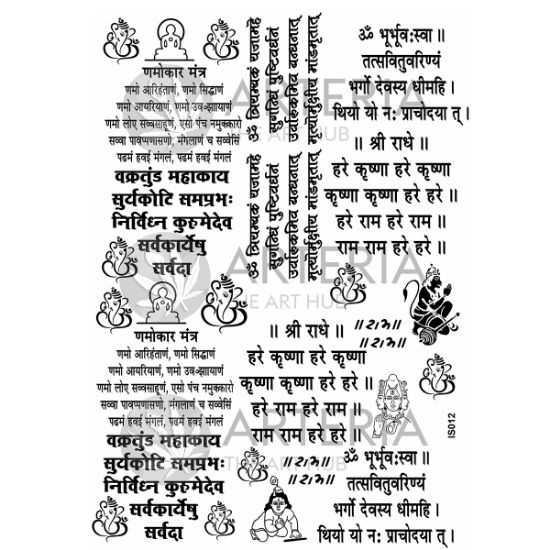 णमोकार मंत्र
णमो आरिहंताणं, णमो सिद्धाणं
णमो आयरियाणं, णमो उवज्झायाणं
णमो लोए सव्वसाहूणं, एसो पंच नमुक्कारो
सव्वा पावप्पणासणो, मंगलाणं च सव्वेसिं
पढमं हवई मंगलं, पढमं हवई मंगलं
वक्रतुंड महाकाय
सुर्यकोटि समप्रभः
निर्विध्न कुरुमेदेव
सर्वकार्येषु
सर्वदा
ॐ त्रियम्बकं यजामहे
सुगन्धिं पुष्टिवर्धनं
उर्वारुकमिव बन्धनात्
मृत्योर्मुक्षीय मांडमृतात्
ॐ त्रियम्बकं यजामहे
सुगन्धिं पुष्टिवर्धनं
उर्वारुकमिव बन्धनात्
मृत्योर्मुक्षीय मांडमृतात्
ॐ भूर्भूवःस्वा ॥
तत्सवितुवरिण्यं
भर्गो देवस्य धीमहि ।
थियो यो नः प्राचोदया त् ।
॥ श्री राधे ॥
हरे कृष्णा हरे कृष्णा
कृष्णा कृष्णा हरे हरे ॥
हरे राम हरे राम ॥
राम राम हरे हरे ॥
णमोकार मंत्र
णमो आरिहंताणं, णमो सिद्धाणं
णमो आयरियाणं, णमो उवज्झायाणं
णमो लोए सव्वसाहूणं, एसो पंच नमुक्कारो
सव्वा पावप्पणासणो, मंगलाणं च सव्वेसिं
पढमं हवई मंगलं, पढमं हवई मंगलं
वक्रतुंड महाकाय
सुर्यकोटि समप्रभः
निर्विध्न कुरुमेदेव
सर्वकार्येषु
सर्वदा
॥ श्री राधे ॥
हरे कृष्णा हरे कृष्णा
कृष्णा कृष्णा हरे हरे ॥
हरे राम हरे राम ॥
राम राम हरे हरे ॥
॥राम॥
॥राम॥
॥राम॥
॥राम॥
ॐ भूर्भूवःस्वा ॥
तत्सवितुवरिण्यं
भर्गो देवस्य धीमहि ।
थियो यो नः प्राचोदया त् ।
IS012
ARTERIA
THE ART HUB
ARTERIA
THE ART HUB
ARTERIA
THE ART HUB